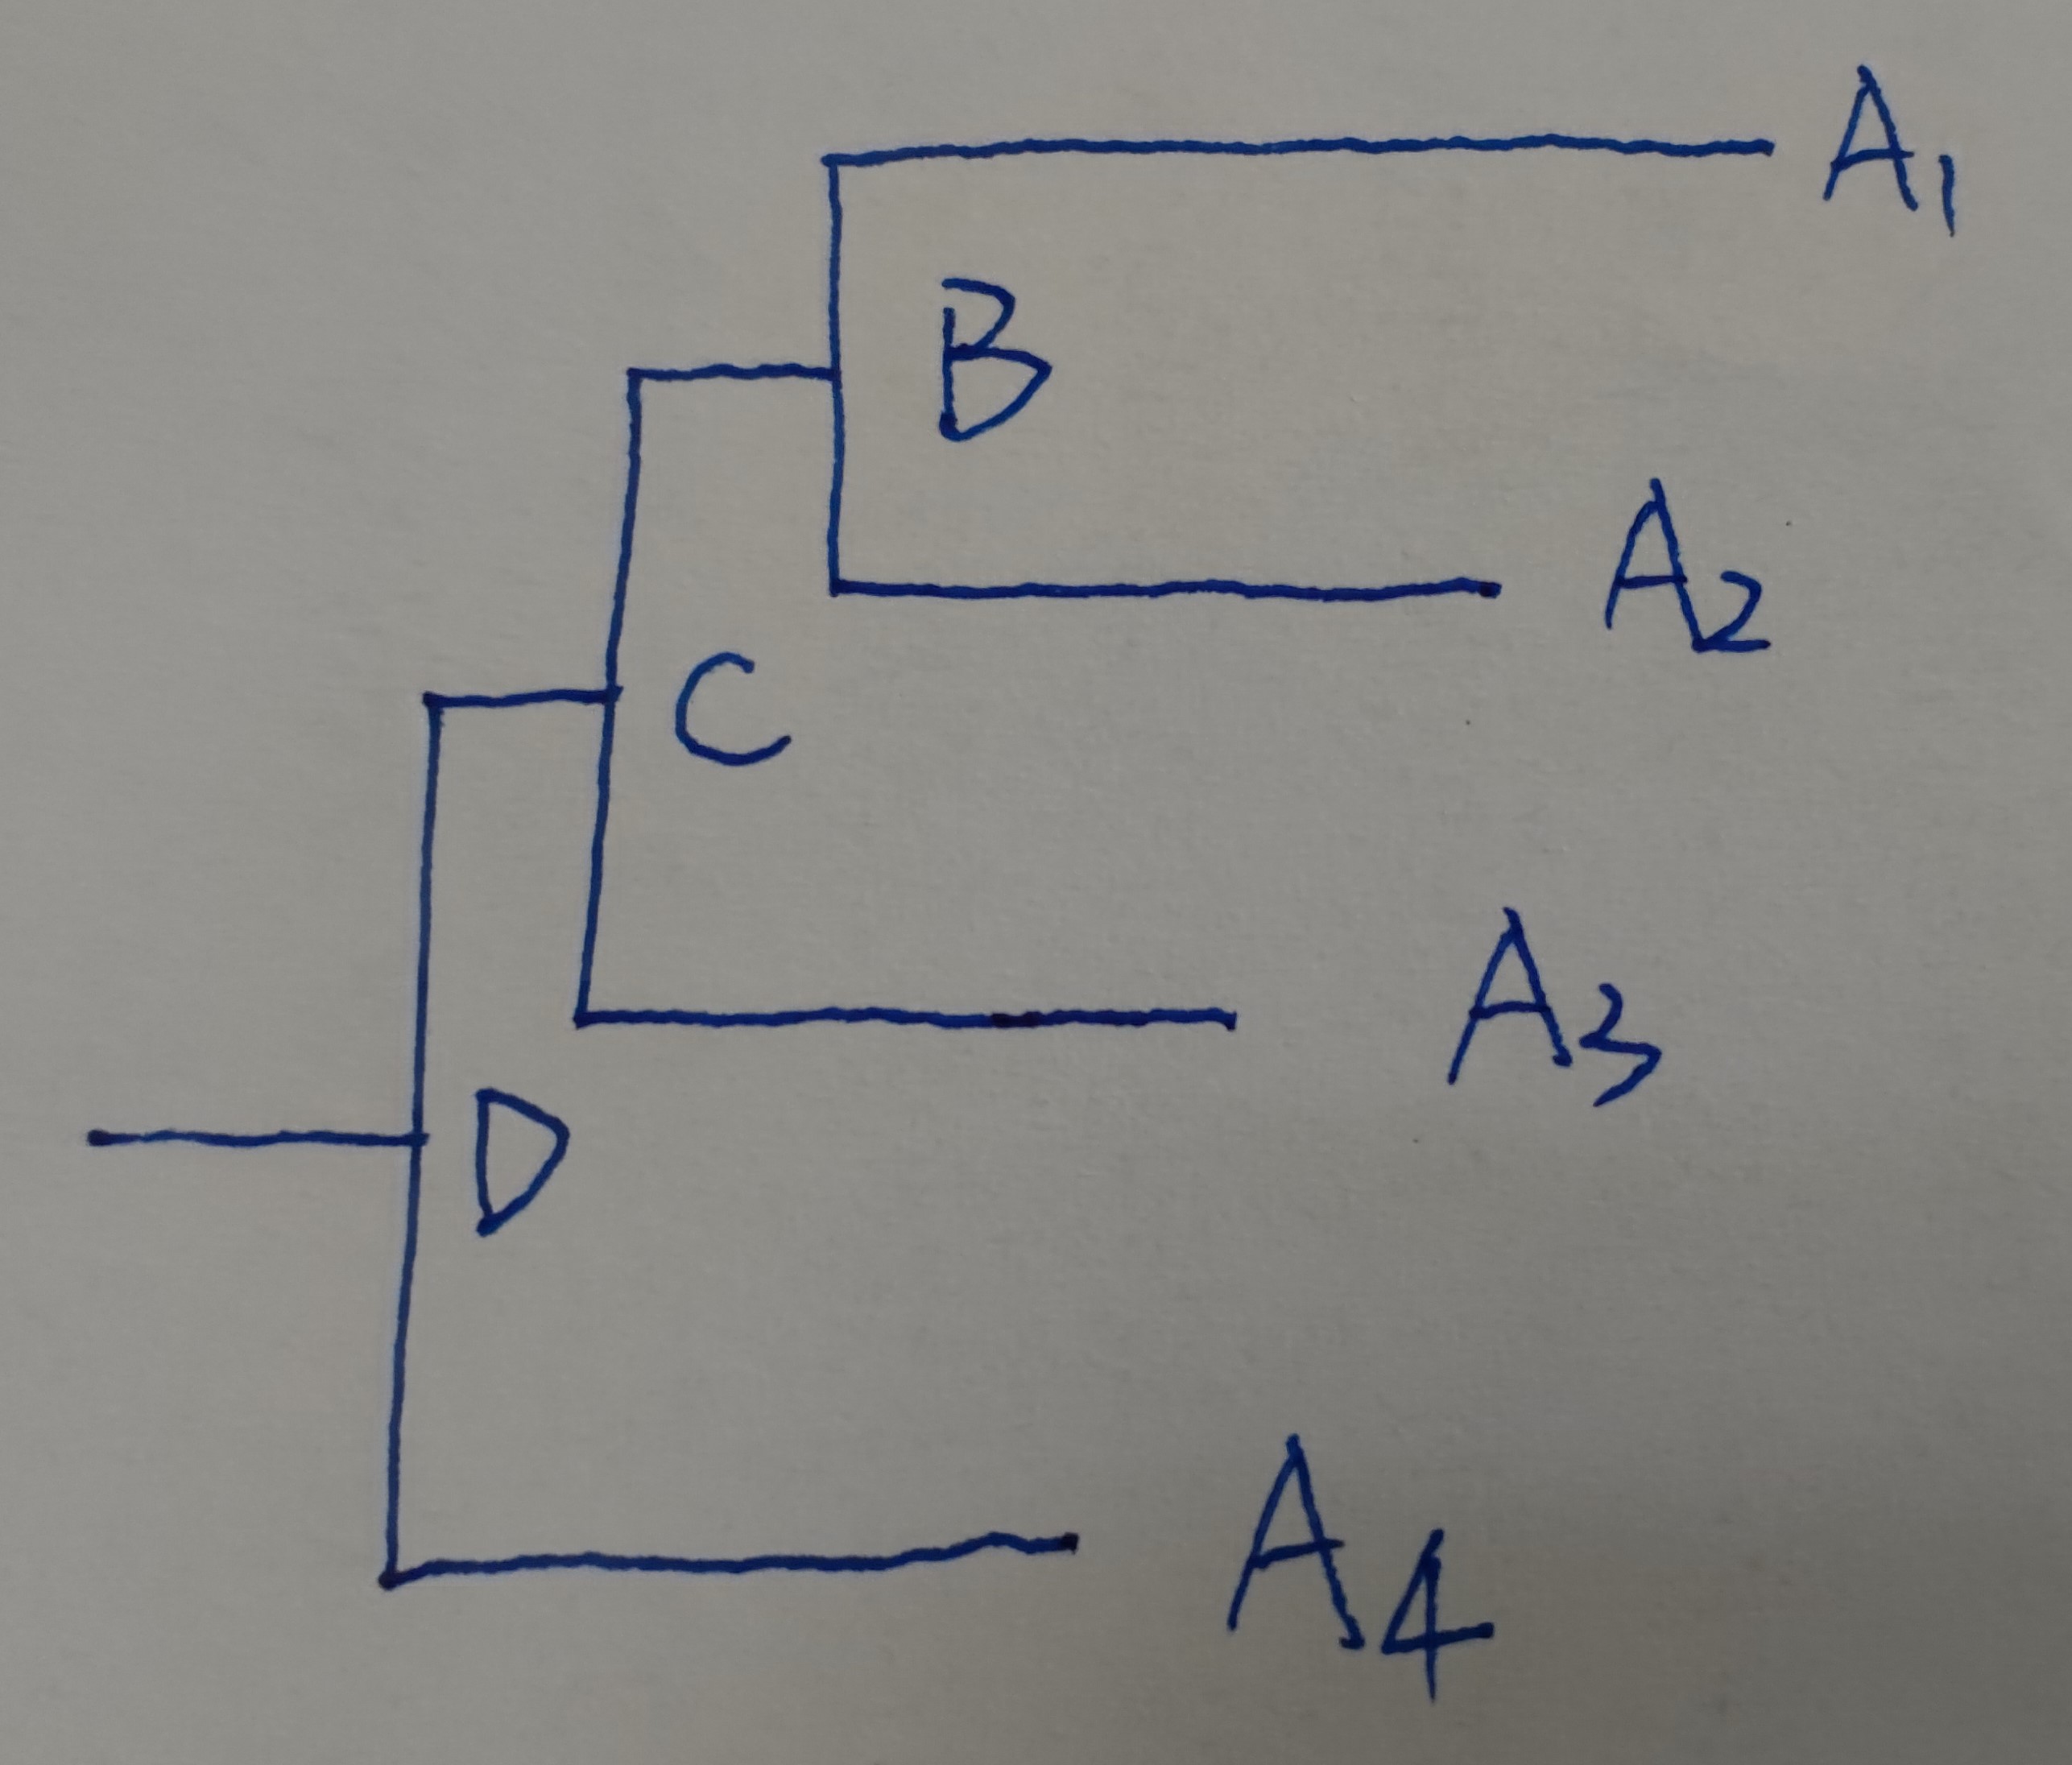 A1
B
A2
C
A3
D
A4